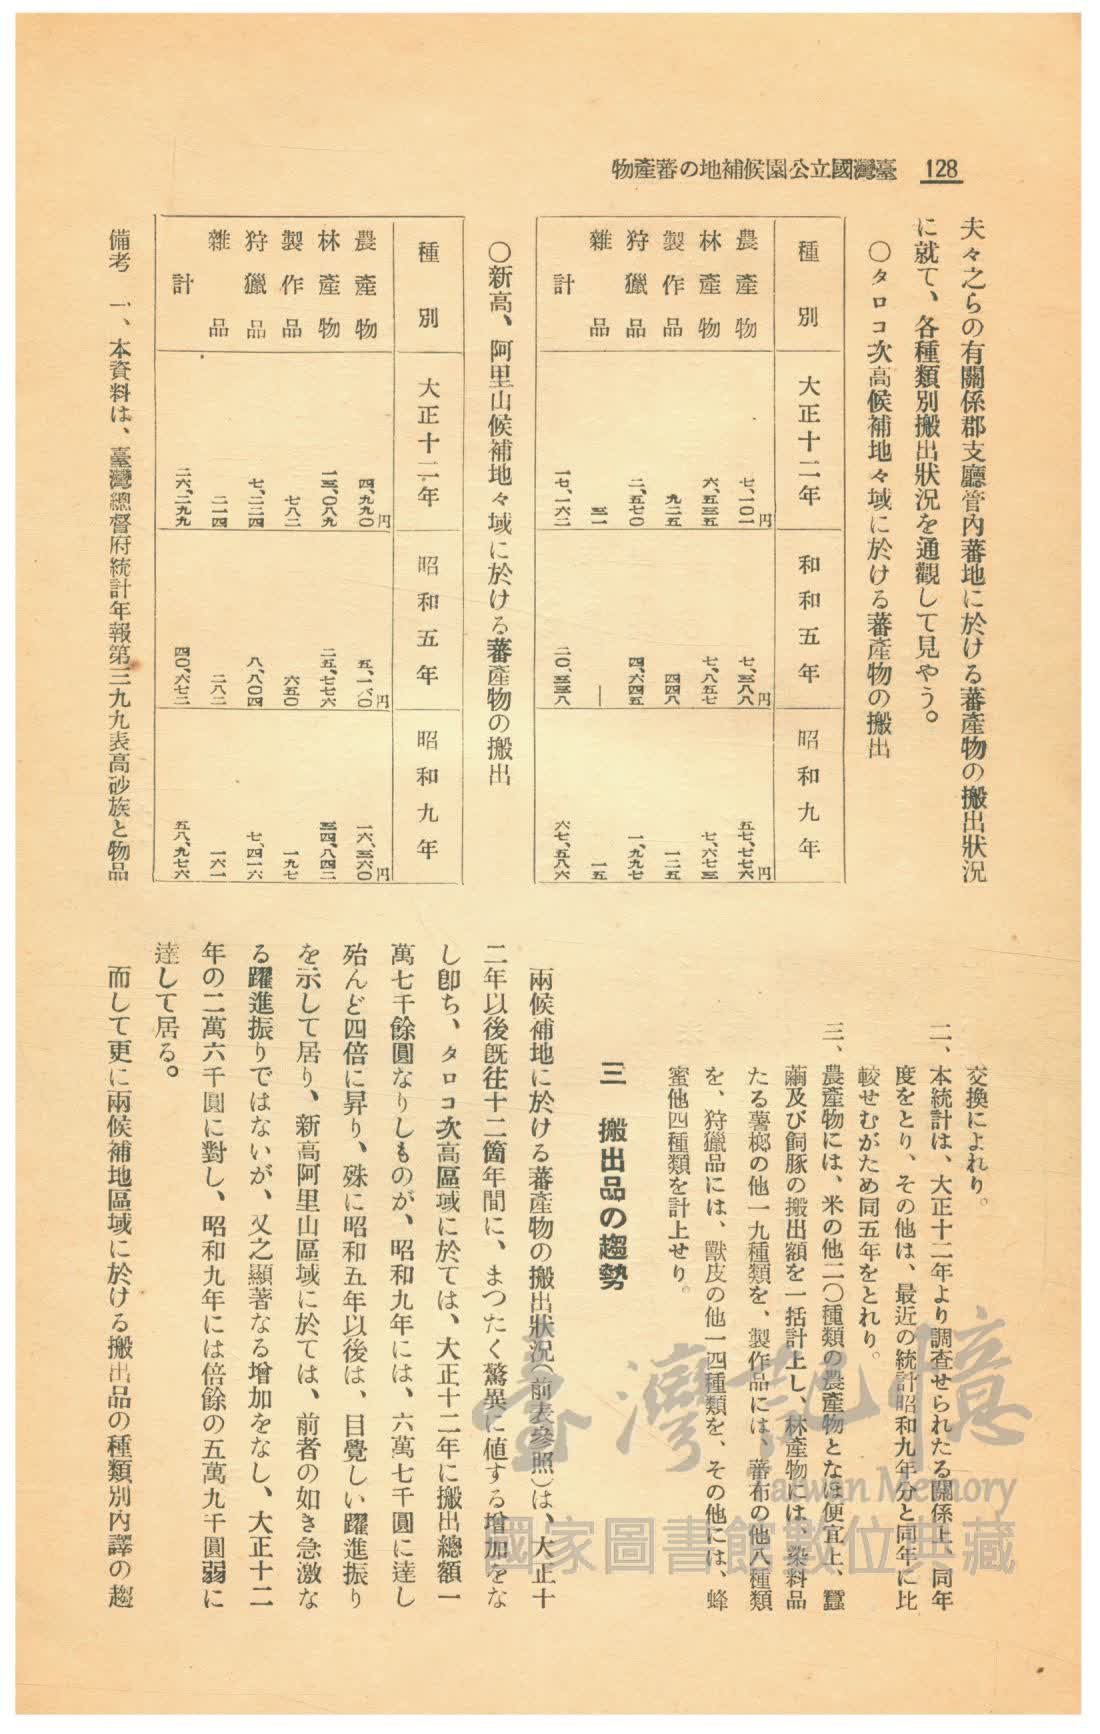 128 臺灣國立公園候補地の蕃產物
夫々之らの有關係郡支廳管內蕃地に於ける蕃產物の搬出狀況
に就て、各種類別搬出狀況を通觀して見やう。
〇タロコ次高候補地々域に於ける蕃產物の搬出
種別 大正十二年 和和五年 昭和九年
農產物 七、一〇一円 七、三八八円 五七、七七六円
林產物 六、五三五 七、八五七 七、六七三
製作品 九二五 四四八 一二五
狩獵品 二、五七〇 四、六四五 一、九九七
雜品 三一 — 一五
計 一七、一六二 二〇、三三八 六七、五八六
〇新高、阿里山候補地々域に於ける蕃產物の搬出
種別 大正十二年 昭和五年 昭和九年
農產物 四、九九〇円 五、一六〇円 一六、三六〇円
林產物 一三、〇八九 二五、七七六 三四、八四二
製作品 七八二 六五〇 一九七
狩獵品 七、二二四 八、八〇四 七、四一六
雜品 二一四 二八二 一六一
計 二六、二九九 四〇、六七二 五八、九七六
備考 一、本資料は、臺灣總督府統計年報第三九九表高砂族と物品
交換によれり。
二、本統計は、大正十二年より調査せられたる關係上、同年
度をとり、その他は、最近の統計昭和九年分と同年に比
較せむがため同五年をとれり。
三、農產物には、米の他二〇種類の農產物となほ便宜上、蠶
繭及び飼豚の搬出額を一括計上し、林產物には、染料品
たる薯榔の他一九種類を、製作品には、蕃布の他八種類
を、狩獵品には、獸皮の他一四種類を、その他には、蜂
蜜他四種類を計上せり。
三 搬出品の趨勢
兩候補地に於ける蕃產物の搬出狀況(前表參照)は、大正十
二年以後既往十二箇年間に、まつたく驚異に値する增加をな
し卽ち、タロコ次高區域に於ては、大正十二年に搬出總額一
萬七千餘圓なりしものが、昭和九年には、六萬七千圓に達し
殆んど四倍に昇り、殊に昭和五年以後は、目覺しい躍進振り
を示して居り、新高阿里山區域に於ては、前者の如き急激な
る躍進振りではないが、又之顯著なる增加をなし、大正十二
年の二萬六千圓に對し、昭和九年には倍餘の五萬九千圓弱に
達して居る。
而して更に兩候補地區域に於ける搬出品の種類別內譯の趨
臺灣記憶
Taiwan Memory
國家圖書館數位典藏